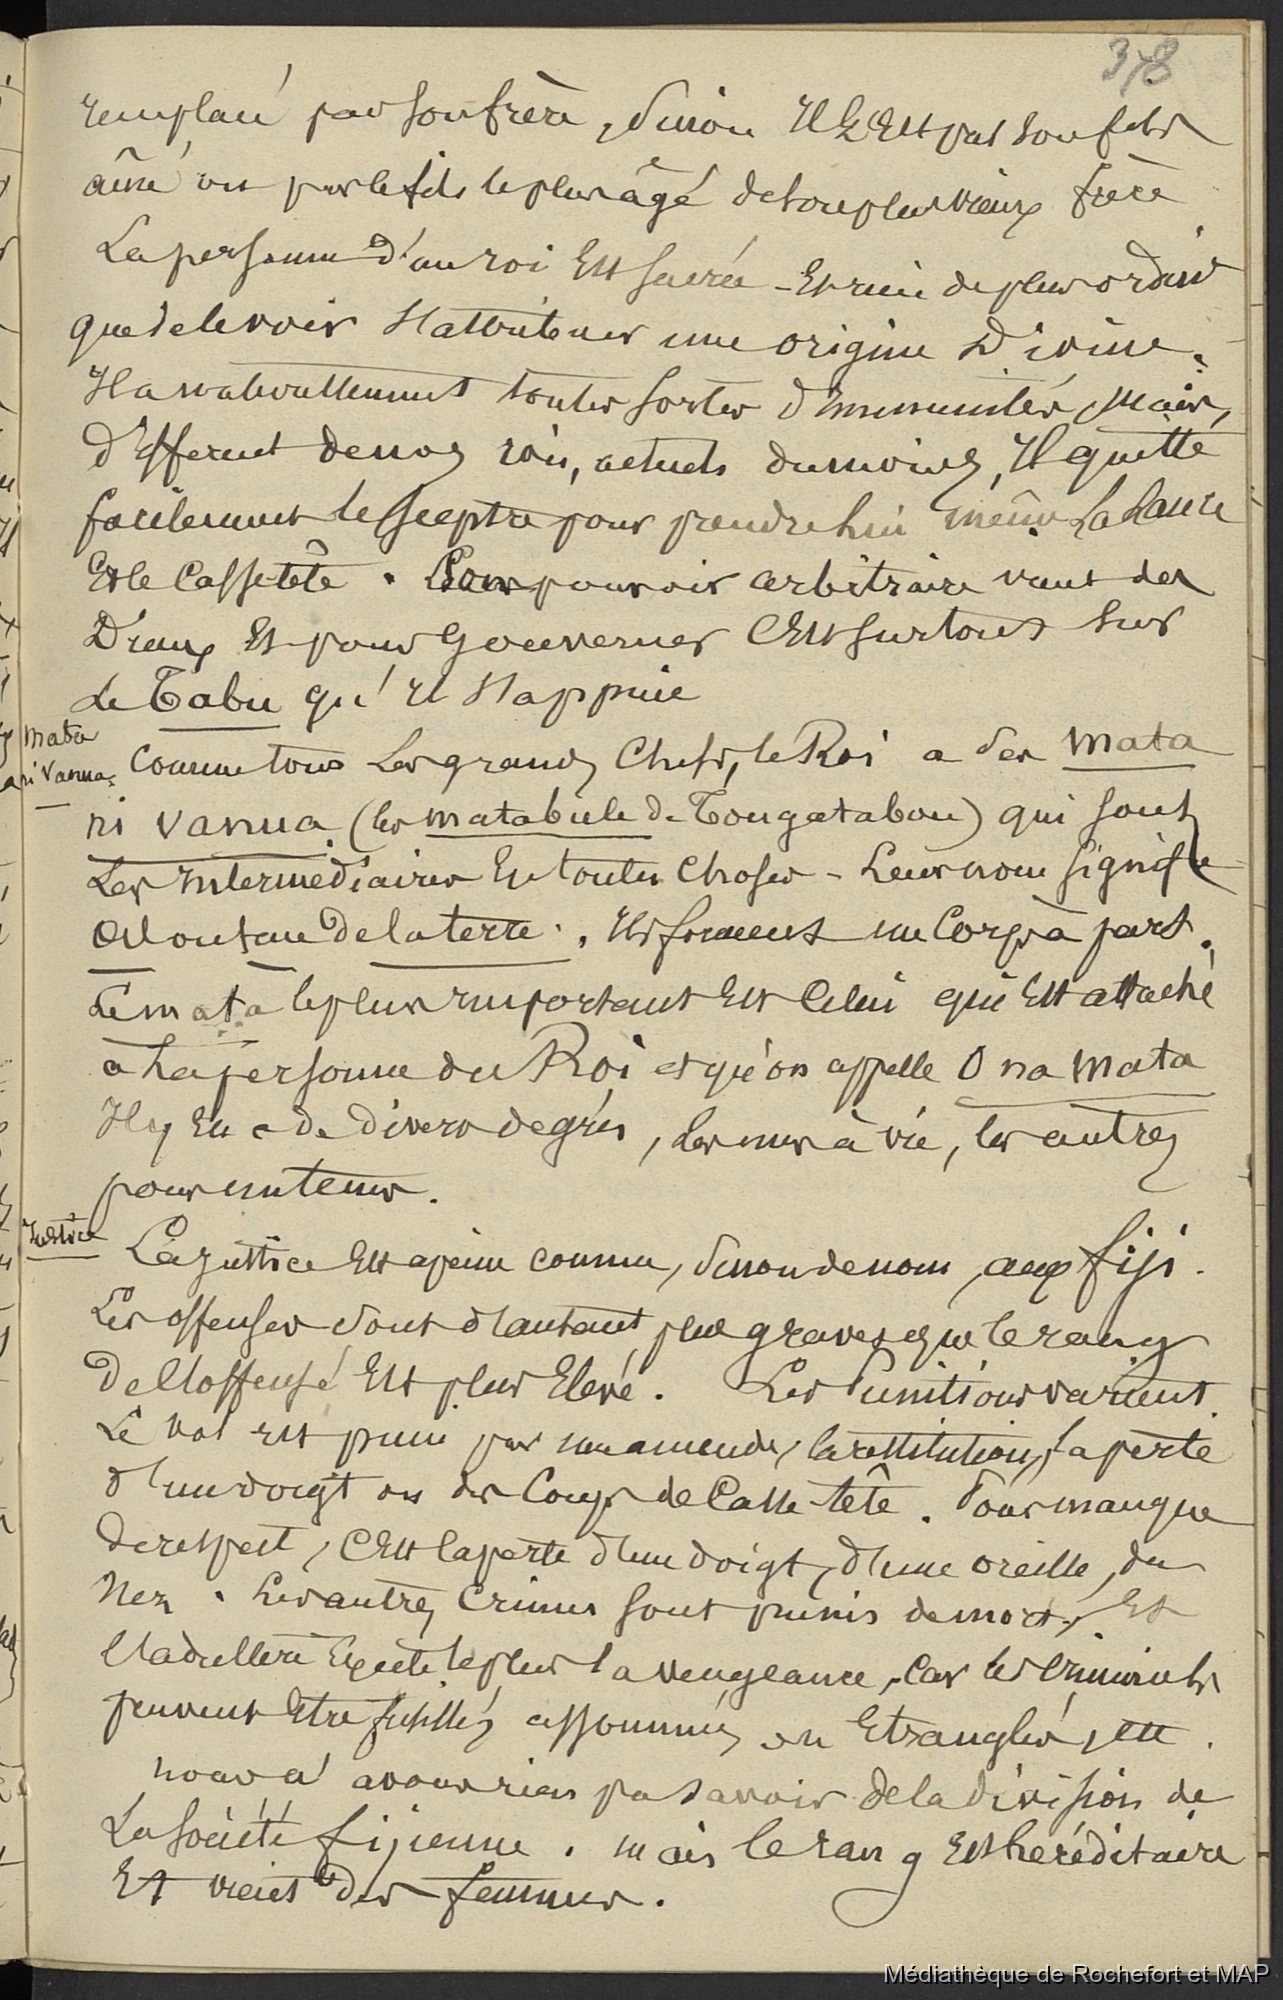 378
remplacé par son frère, sinon Il l'Est par son fils
aîné ou par le fils le plus âgé de son plus vieux frère
La personne d'un roi Est sacrée - Et rien de plus ordinre
que de le voir s'attribuer une origine Divine.
Il a naturellement toutes sortes d'immunités, mais,
différent de nos rois, actuels du moins, Il quitte
facilement le sceptre pour prendre lui même La Lance
Et le Casse tête. Son pouvoir arbitraire vient des
Dieux Et pour Gouverner C'Est surtout sur
Le Tabu qu'Il s'appuie
Mata
ni vanua
Comme tous Les grands Chefs, le Roi a des Mata
ni vanua (les matabule de Tongatabou) qui sont
Les Intermediaires En toutes Choses - Leur nom signifie
de la terre. Ils forment un Corps à part.
Le mata le plus important Est Celui qui Est attaché
a La personne du Roi et qu'on appelle O na Mata
Il y En a de Divers degrés, Les uns à vie, les autres
pour un tems.
Justice
La justice Est a peine connue, sinon de nom, aux Fiji.
Les offenses sont d'autant plus graves que le rang
De l'offensé Est plus Elevé. Les Punitions varient.
Le vol est puni par une amende, la restitution, la perte
d'un doigt ou des Coups de Casse-tête. Pour manque
de respect, C'Est la perte d'un doigt, d'une oreille, du
Nez. Les autres Crimes sont punis de mort, Et
l'adultère Excite le plus la vengeance, Car les Criminels
peuvent Etre fusillés assommés, ou Etranglés, Etc.
nous n'avons rien pu savoir de la division de
La société fijienne. mais le rang Est heréditaire
Et vient des femmes.
Médiathèque de Rochefort et MAP